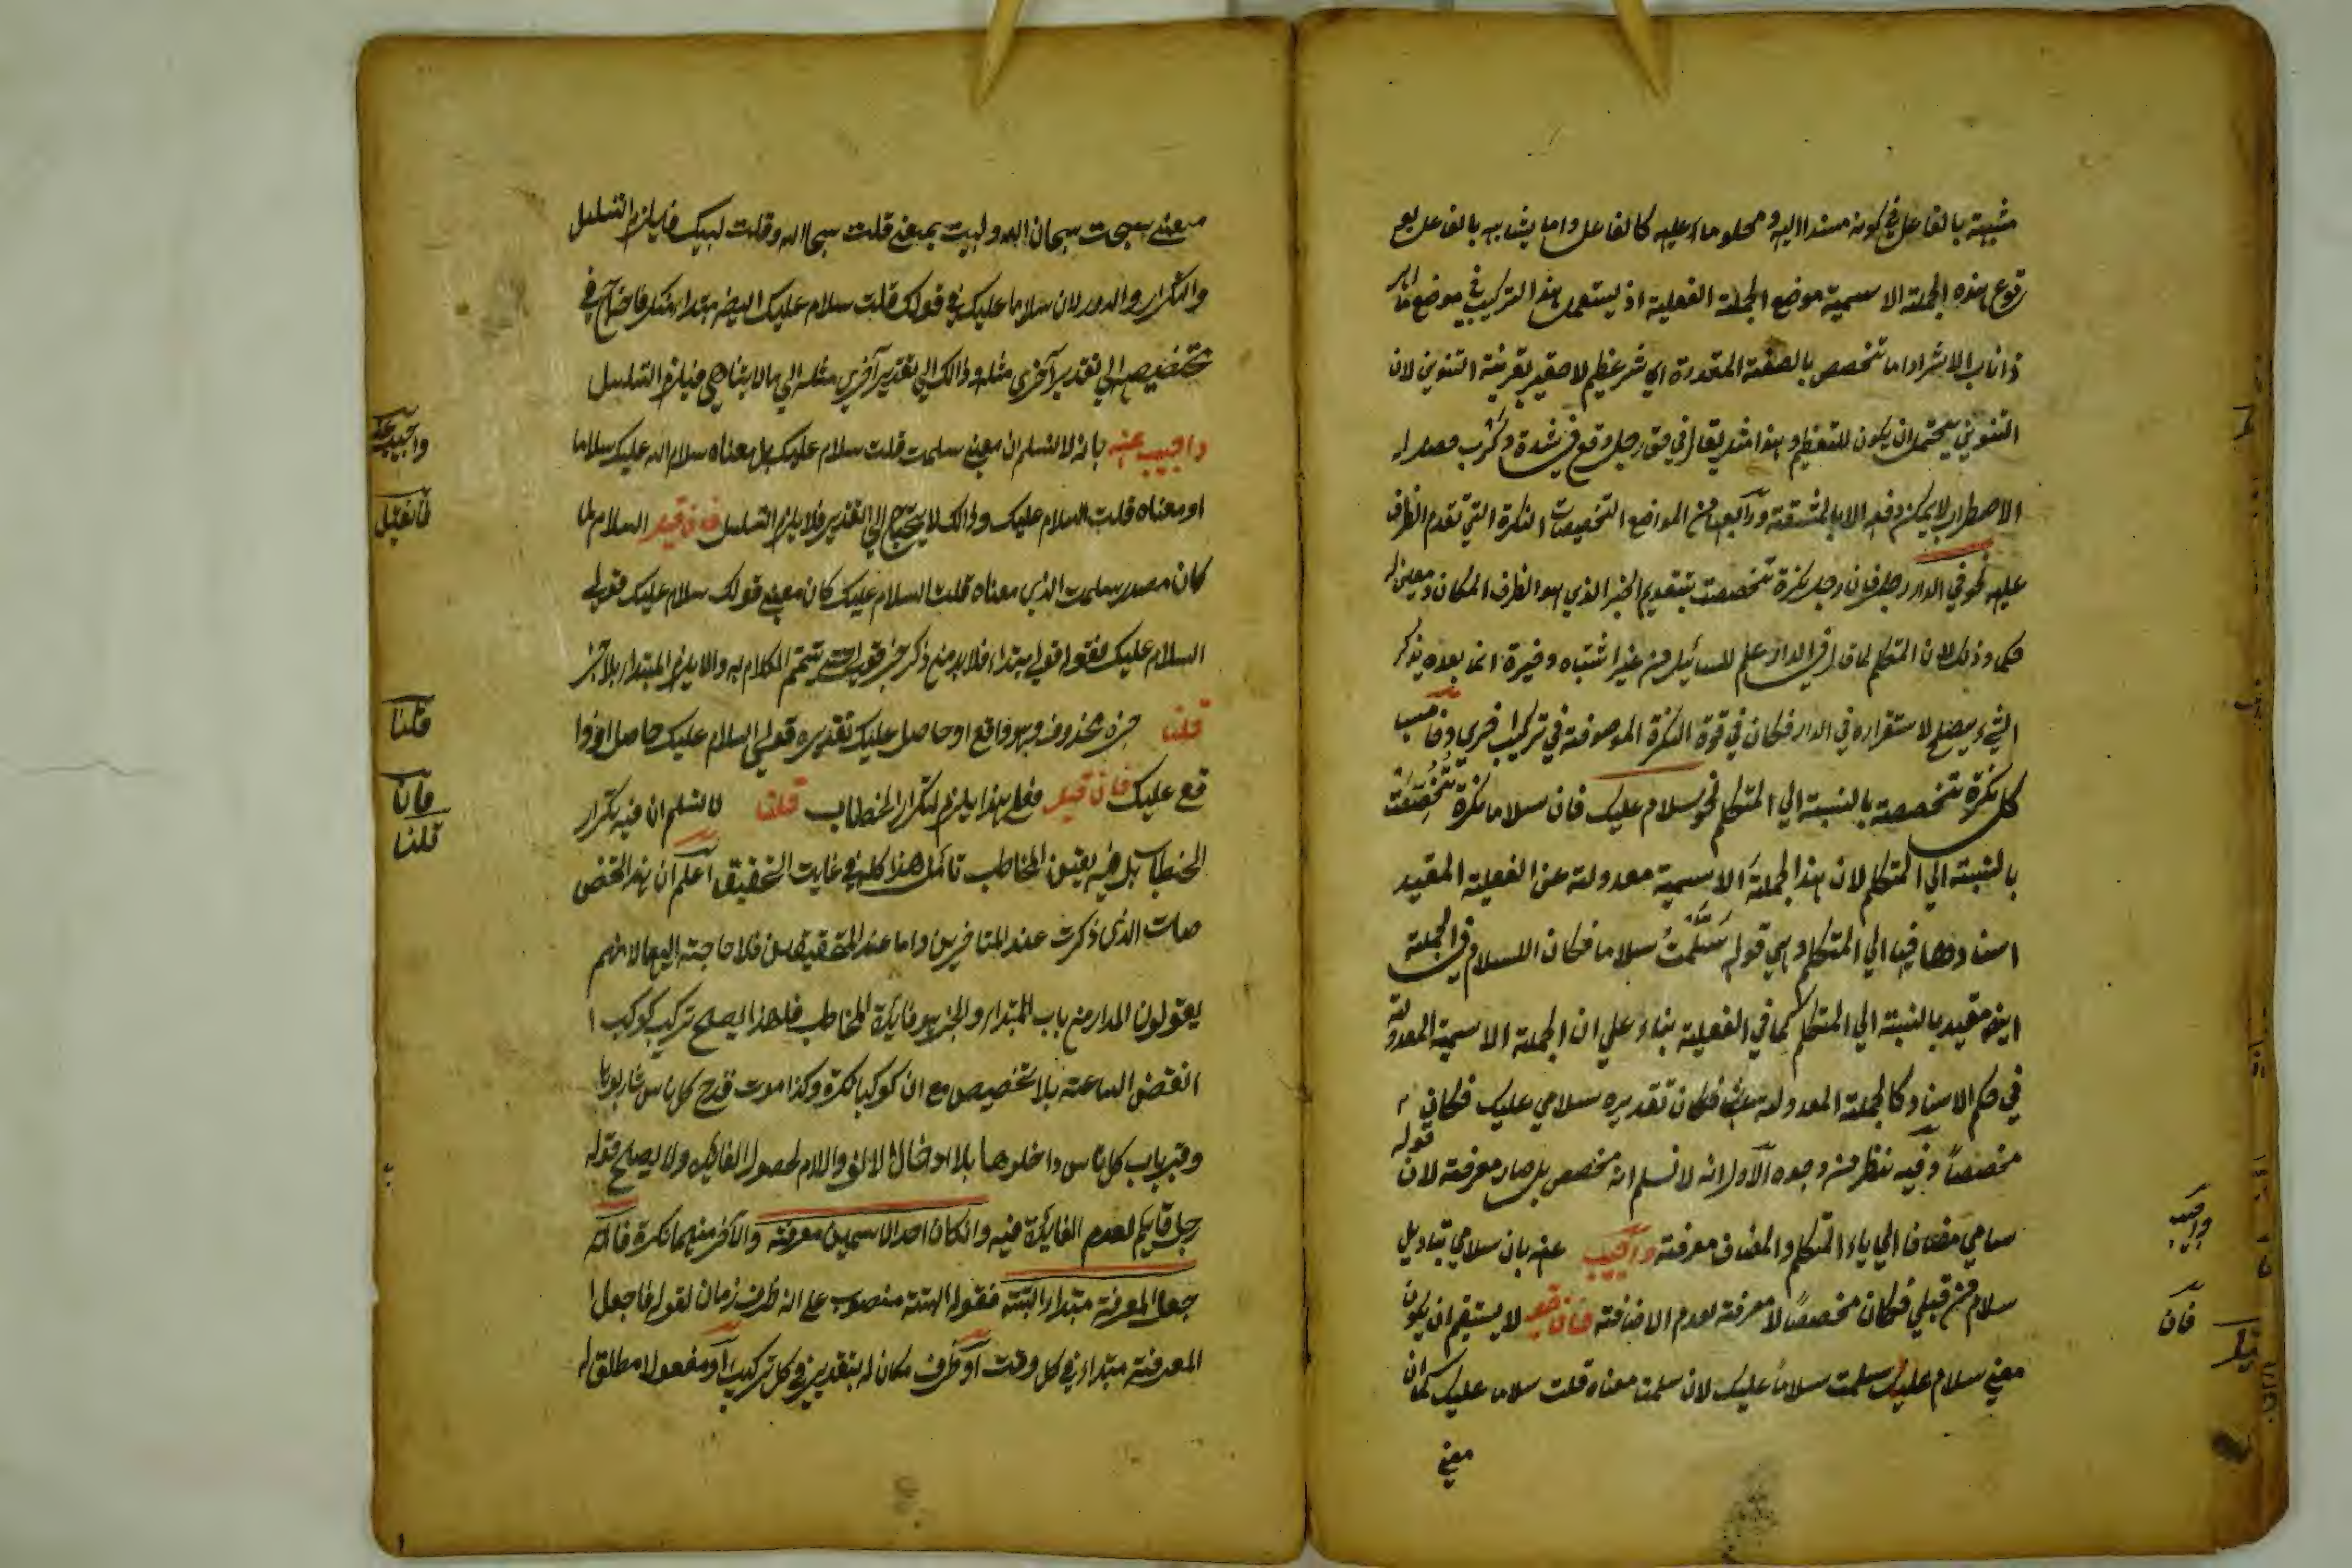 مشبهة بالفاعل في كونه مسندا اليه و محكوما عليه كالفاعل واما يشابه بالفاعل
وقوع هذه الجملة الاسمية موضع الجملة الفعلية اذ يستعمل هذا التركيب في موضع ما اهر
ذا ناب الا شر او اما تخصص بالصفة المقدرة اي شر عظيم لا صغير بقرينة التنوين لان
التنوين يحتمل ان يكون للتعظيم و هذا مثل يقال في حق رجل وقع في شدة و كرب
الاضطرار لا يمكن دفعه الا بالمشقة ورابعها من المواضع التخصيصات النكرة التي تقدم الظرف
عليها نحو في الدار رجل فان رجل نكرة تخصصت بتقديم الخبر الذي هو الظرف المكان
حكما وذلك لان المتكلم لما قال في الدار علم للسائل من غير اشتباه و غيره انما بعده يذكر
الشيء يصلح لاستقراره في الدار فكان في قوة النكرة الموصوفة في تركيب
كل نكرة تخصصة بالنسبة الي المتكلم نحو سلام عليك فان سلاما نكرة تخصصت
بالنسبة الي المتكلم لان هذا الجملة الاسمية معدولة عن الفعلية المقيد
اسنادها فيها الي المتكلم وهي قوله سلمت سلاما فكان السلام في الجملة
ايضا مقيد بالنسبة الي المتكلم كما في الفعلية بناء علي ان الجملة الاسمية المعدولة
في حكم الاسناد كالجملة المعدولة عنها فكان تقديره سلامي عليك فكان
قوله
مخصصا وفيه نظر من وجوه الاول انه لا نسلم انه مخصص بل صار معرفة لان
سلامي مضاف الي ياء المتكلم والمضاف معرفة واجيب عنه بان سلامي بتاويل
سلام من قبلي فكان مخصصا لا معرفة لعدم الاضافة فان قيل لا يستقيم ان يكون
معني سلام عليك سلمت سلاما عليك لان سلمت معناه قلت سلاما عليك كما ان
معني
واجيب
فان
معني سبحت سبحان الله و لبيت بمعني قلت سبحان الله وقلت لبيك فيلزم التسلسل
والتكرار والدور لان سلاما عليك في قولك قلت سلام عليك ايضا مبتداء منكر فاحتاج في
تخصيصه الي تقدير آخري مثله وذالك الي تقدير آخري مثله الي ما لا يتناهي فيلزم التسلسل
واجيب عنه بانه لا نسلم ان معني سلمت قلت سلام عليك بل معناه سلام الله عليك سلاما
او معناه قلت السلام عليك وذالك لا يحتاج الي التقدير فلا يلزم التسلسل فان قيل السلام لما
كان مصدر سلمت الذي معناه قلت السلام عليك كان معني قولك سلام عليك قولي
السلام عليك فقوله قولي مبتداء فلا بد من ذكر خبر حتي يتم الكلام به والا يلزم المبتداء بلا خبر
قلنا خبره محذوف وهو واقع او حاصل عليك تقديره قولي السلام عليك حاصل او وا
قع عليك فان قيل فعلي هذا يلزم التكرار الخطاب قلنا لا نسلم ان فيه تكرار
الخطاب بل فيه يعين المخاطب تأمل هذا كله في غايت التحقيق اعلم ان هذه المخصـ
صات الذي ذكرت عند المتاخرين واما عند المحققين فلا حاجة اليها لانهم
يقولون المدار من باب المبتداء والخبر هو فايدة المخاطب فلهذا يصلح تركيب كوكب ا
انقض الساعة بلا تخصيص مع ان كوكبا نكرة وكذا موت قدح كل ناس شاربوها
وقبر باب كل ناس داخلوها بلا ادخال الالف واللام لحصول الفائدة ولا يصلح قوله
رجل قايم لعدم الفايدة فيه وان كان احد الاسمين معرفة والآخر منهما نكرة فالـ
جعل المعرفة مبتداء البتة فقوله البتة منصوب علي انه ظرف زمان لقوله فاجعل ا
المعرفة مبتداء في كل وقت او ظرف مكان له بتقدير في كل تركيب او مفعولا مطلق له
واجيب عنه
فان قيل
قلنا
فان
قلنا